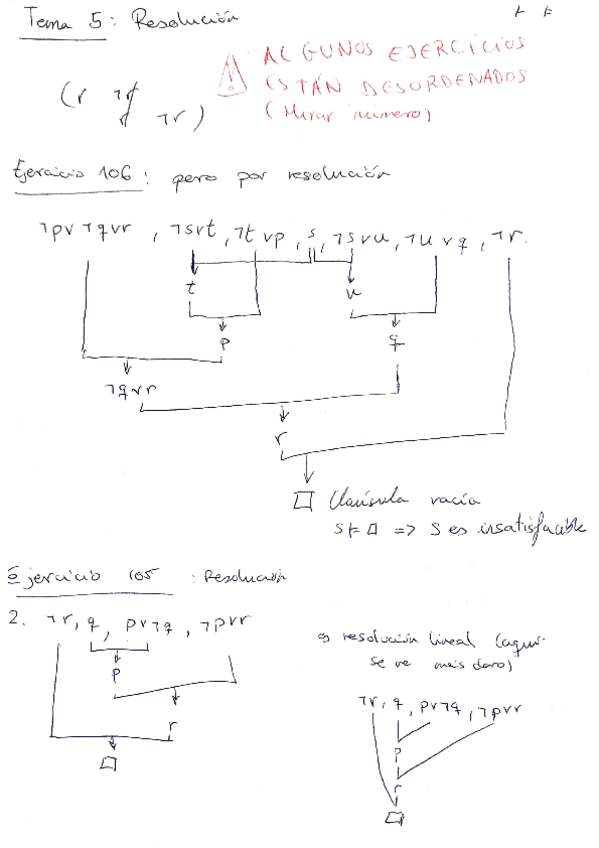 Tema 5: Resolución
⊢ ⊨
ALGUNOS EJERCICIOS
ESTÁN DESORDENADOS
(Mirar número)
(r ¬r
¬r)
Ejercicio 106: pero por resolución
¬p∨¬q∨r, ¬s∨t, ¬t∨p, s, ¬s∨u, ¬u∨q, ¬r.
t u
p q
¬q∨r
r
□ Claúsula vacía
S⊨□ => S es insatisfacible
Ejercicio 105: Resolución
2. ¬r, q, p∨¬q, ¬p∨r
p
r
□
resolución lineal (aquí
se ve más claro)
¬r, q, p∨¬q, ¬p∨r
p
r
□